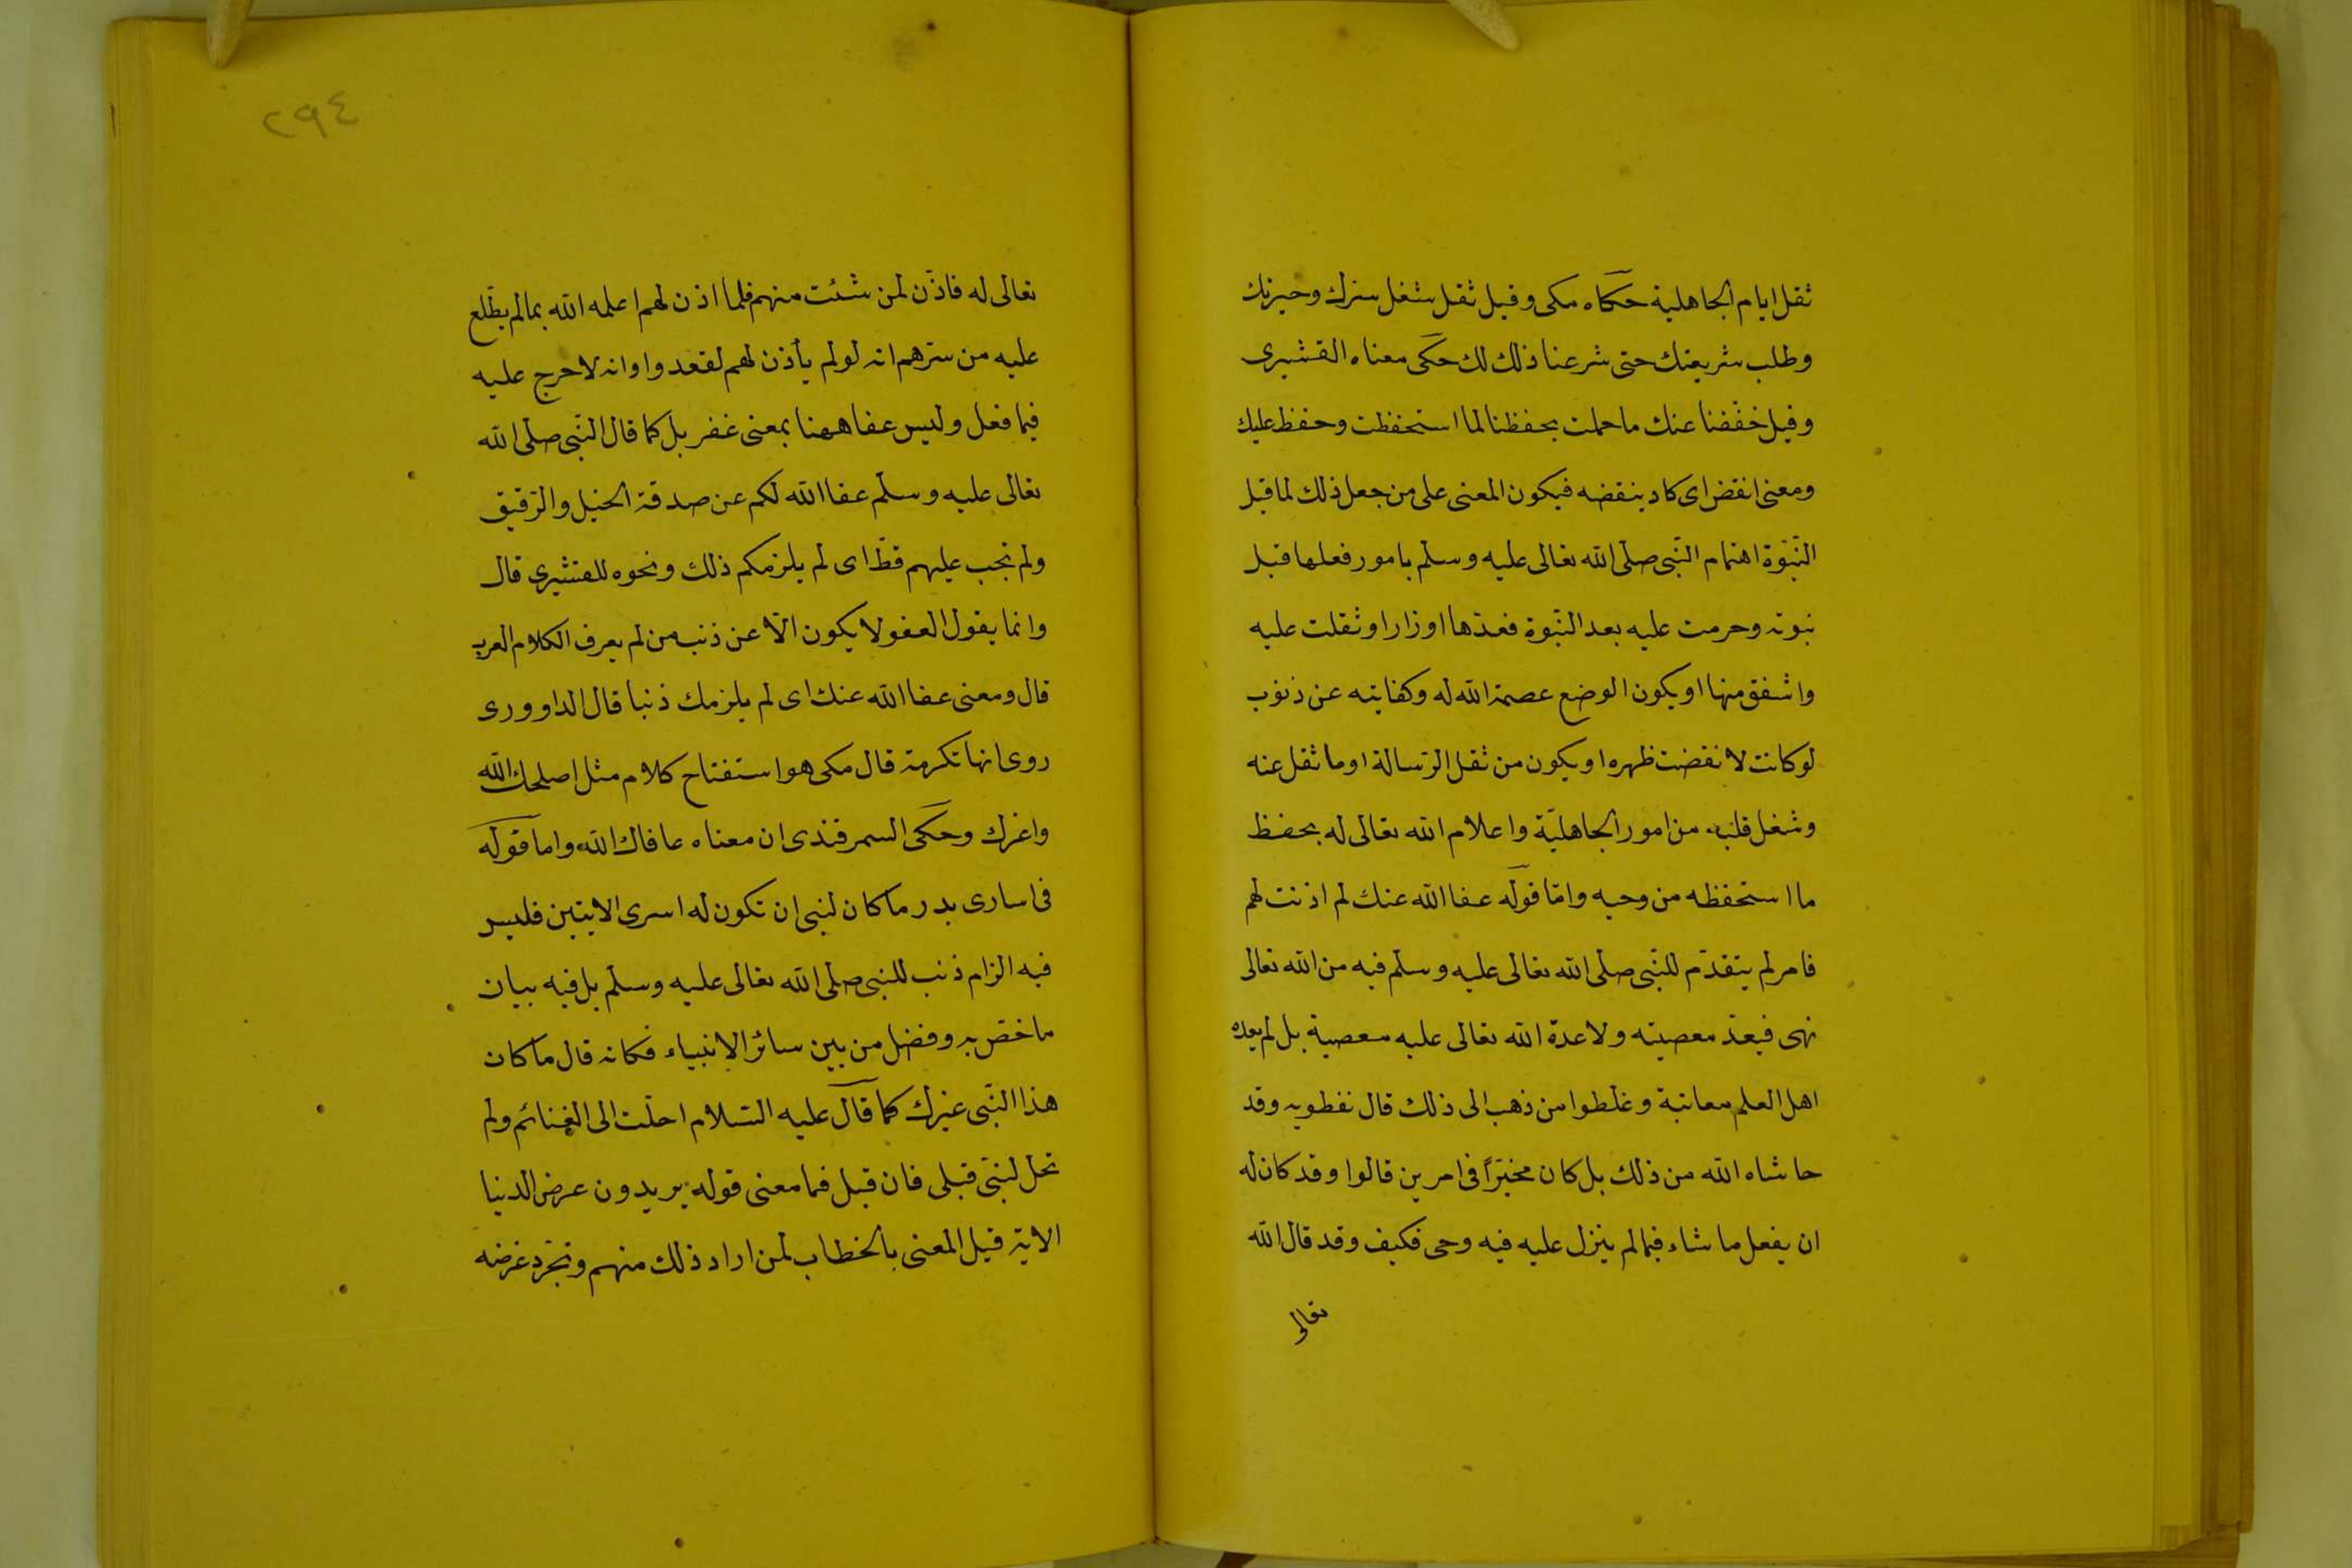 ثقل ايام الجاهلية حكاه مكى وقيل ثقل شغل سرك وحيرتك
وطلب شريعتك حتى شرعنا ذلك لك حكى معناه القشيرى
وقيل خففنا عنك ما حملت بحفظنا لما استحفظت وحفظ عليك
ومعنى انقض اى كاد ينقضه فيكون المعنى على من جعل ذلك لما قبل
النّبوّة اهتمام النّبى صلّى الله تعالى عليه وسلّم بامور فعلها قبل
نبوته وحرمت عليه بعد النّبوة فعدّها اوزارا وثقلت عليه
واشفق منها او يكون الوضع عصمة الله له وكفايته عن ذنوب
لو كانت لانقضت ظهره او يكون من ثقل الرّسالة او ما ثقل عنه
وشغل قلبه من امور الجاهليّة واعلام الله تعالى له بحفظ
ما استحفظه من وحيه وامّا قوله عفا الله عنك لم اذنت لهم
فامر لم يتقدّم للنّبى صلّى الله تعالى عليه وسلّم فيه من الله تعالى
نهى فيعدّ معصيته ولا عدّه الله تعالى عليه معصية بل لم يعده
اهل العلم معاتبة وغلطوا من ذهب الى ذلك قال نفطويه وقد
حاشاه الله من ذلك بل كان مخيّرًا فى امرين قالوا وقد كان له
ان يفعل ما شاء فيما لم ينزل عليه فيه وحى فكيف وقد قال الله
تعالى
٢٩٤
تعالى له فاذن لمن شئت منهم فلما اذن لهم اعلمه الله بما لم يطّلع
عليه من سرّهم انه لو لم يأذن لهم لقعدوا وانه لا حرج عليه
فيما فعل وليس عفا ههنا بمعنى غفر بل كما قال النّبى صلّى الله
تعالى عليه وسلّم عفا الله لكم عن صدقة الخيل والرّقيق
ولم تجب عليهم قطّ اى لم يلزمكم ذلك ونحوه للقشيرى قال
وانما يقول العفو لا يكون الّا عن ذنب من لم يعرف الكلام العرب
قال ومعنى عفا الله عنك اى لم يلزمك ذنبا قال الداوورى
روى انها تكرمة قال مكى هو استفتاح كلام مثل اصلحك الله
واعزك وحكى السمرقندى ان معناه عافاك الله واما قوله
فى اسارى بدر ما كان لنبى ان تكون له اسرى الايتين فليس
فيه الزام ذنب للنبى صلّى الله تعالى عليه وسلّم بل فيه بيان
ما خصّ به وفضل من بين سائر الانبياء فكانه قال ما كان
هذا النّبى غيرك كما قال عليه السّلام احلّت الى الغنائم ولم
تحل لنبىّ قبلى فان قيل فما معنى قوله يريدون عرض الدنيا
الاية قيل المعنى بالخطاب لمن اراد ذلك منهم وتجرّد غرضه